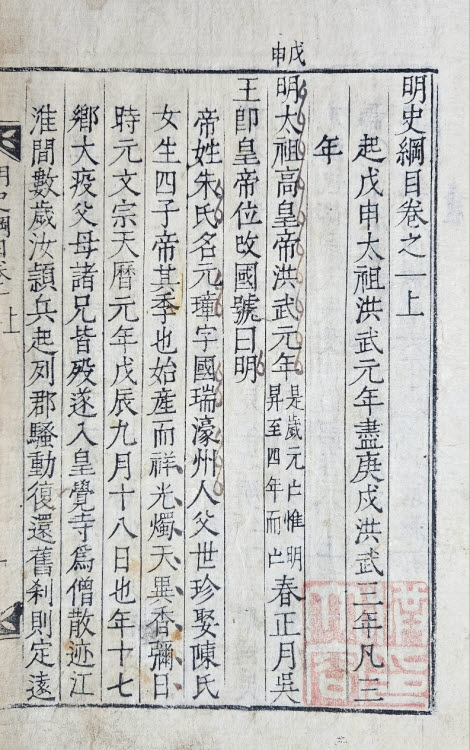 明史綱目卷之一上
起戊申太祖洪武元年盡庚戌洪武三年凡三
年
戊申
明太祖高皇帝洪武元年是歲元亡惟明昇至四年而亡春正月吳
王卽皇帝位改國號曰明
帝姓朱氏名元璋字國瑞濠州人父世珍娶陳氏
女生四子帝其季也始産而祥光燭天異香彌日
時元文宗天曆元年戊辰九月十八日也年十七
鄕大疫父母諸兄皆歿遂入皇覺寺爲僧散迹江
淮間數歲汝潁兵起列郡騷動復還舊刹則定遠
明史綱目卷一 上